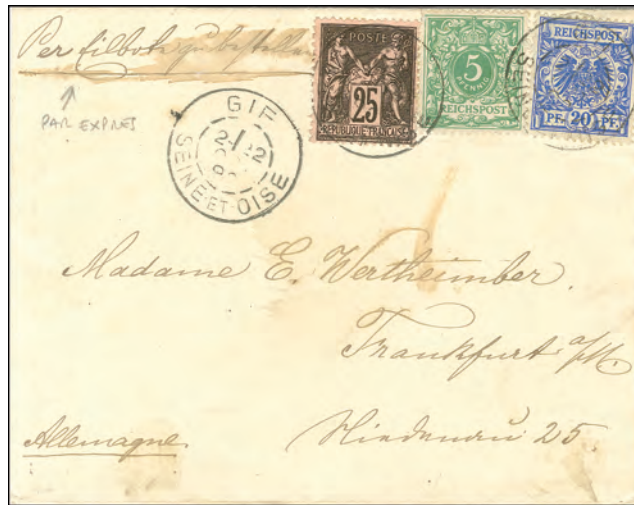 Per Eilbote zu bestellen
PAR EXPRES
POSTE
25
REPUBLIQUE FRANCAISE
5
PFENNIG
REICHSPOST
REICHSPOST
PF. 20 PF.
GIF
SEINE-ET-OISE
Madame E. Wertheimber.
Frankfurt a/M.
Allemagne.
25.